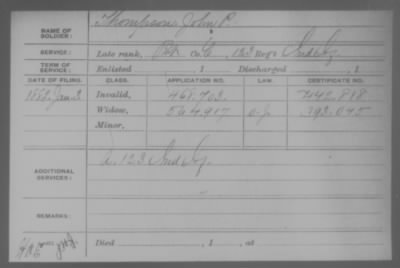 NAME OF SOLDIER: Thompson, John P.
SERVICE: Late rank, Co. 123 Reg't Ind Inf
TERM OF SERVICE: Enlisted , 1 Discharged , 1
DATE OF FILING. CLASS. APPLICATION NO. LAW. CERTIFICATE NO.
1882, Jan 2 Invalid, 468.763. 442.818
Widow, 564.917 393.045
Minor,
ADDITIONAL SERVICES: A. 123 Ind Inf
REMARKS:
Died , 1 , at